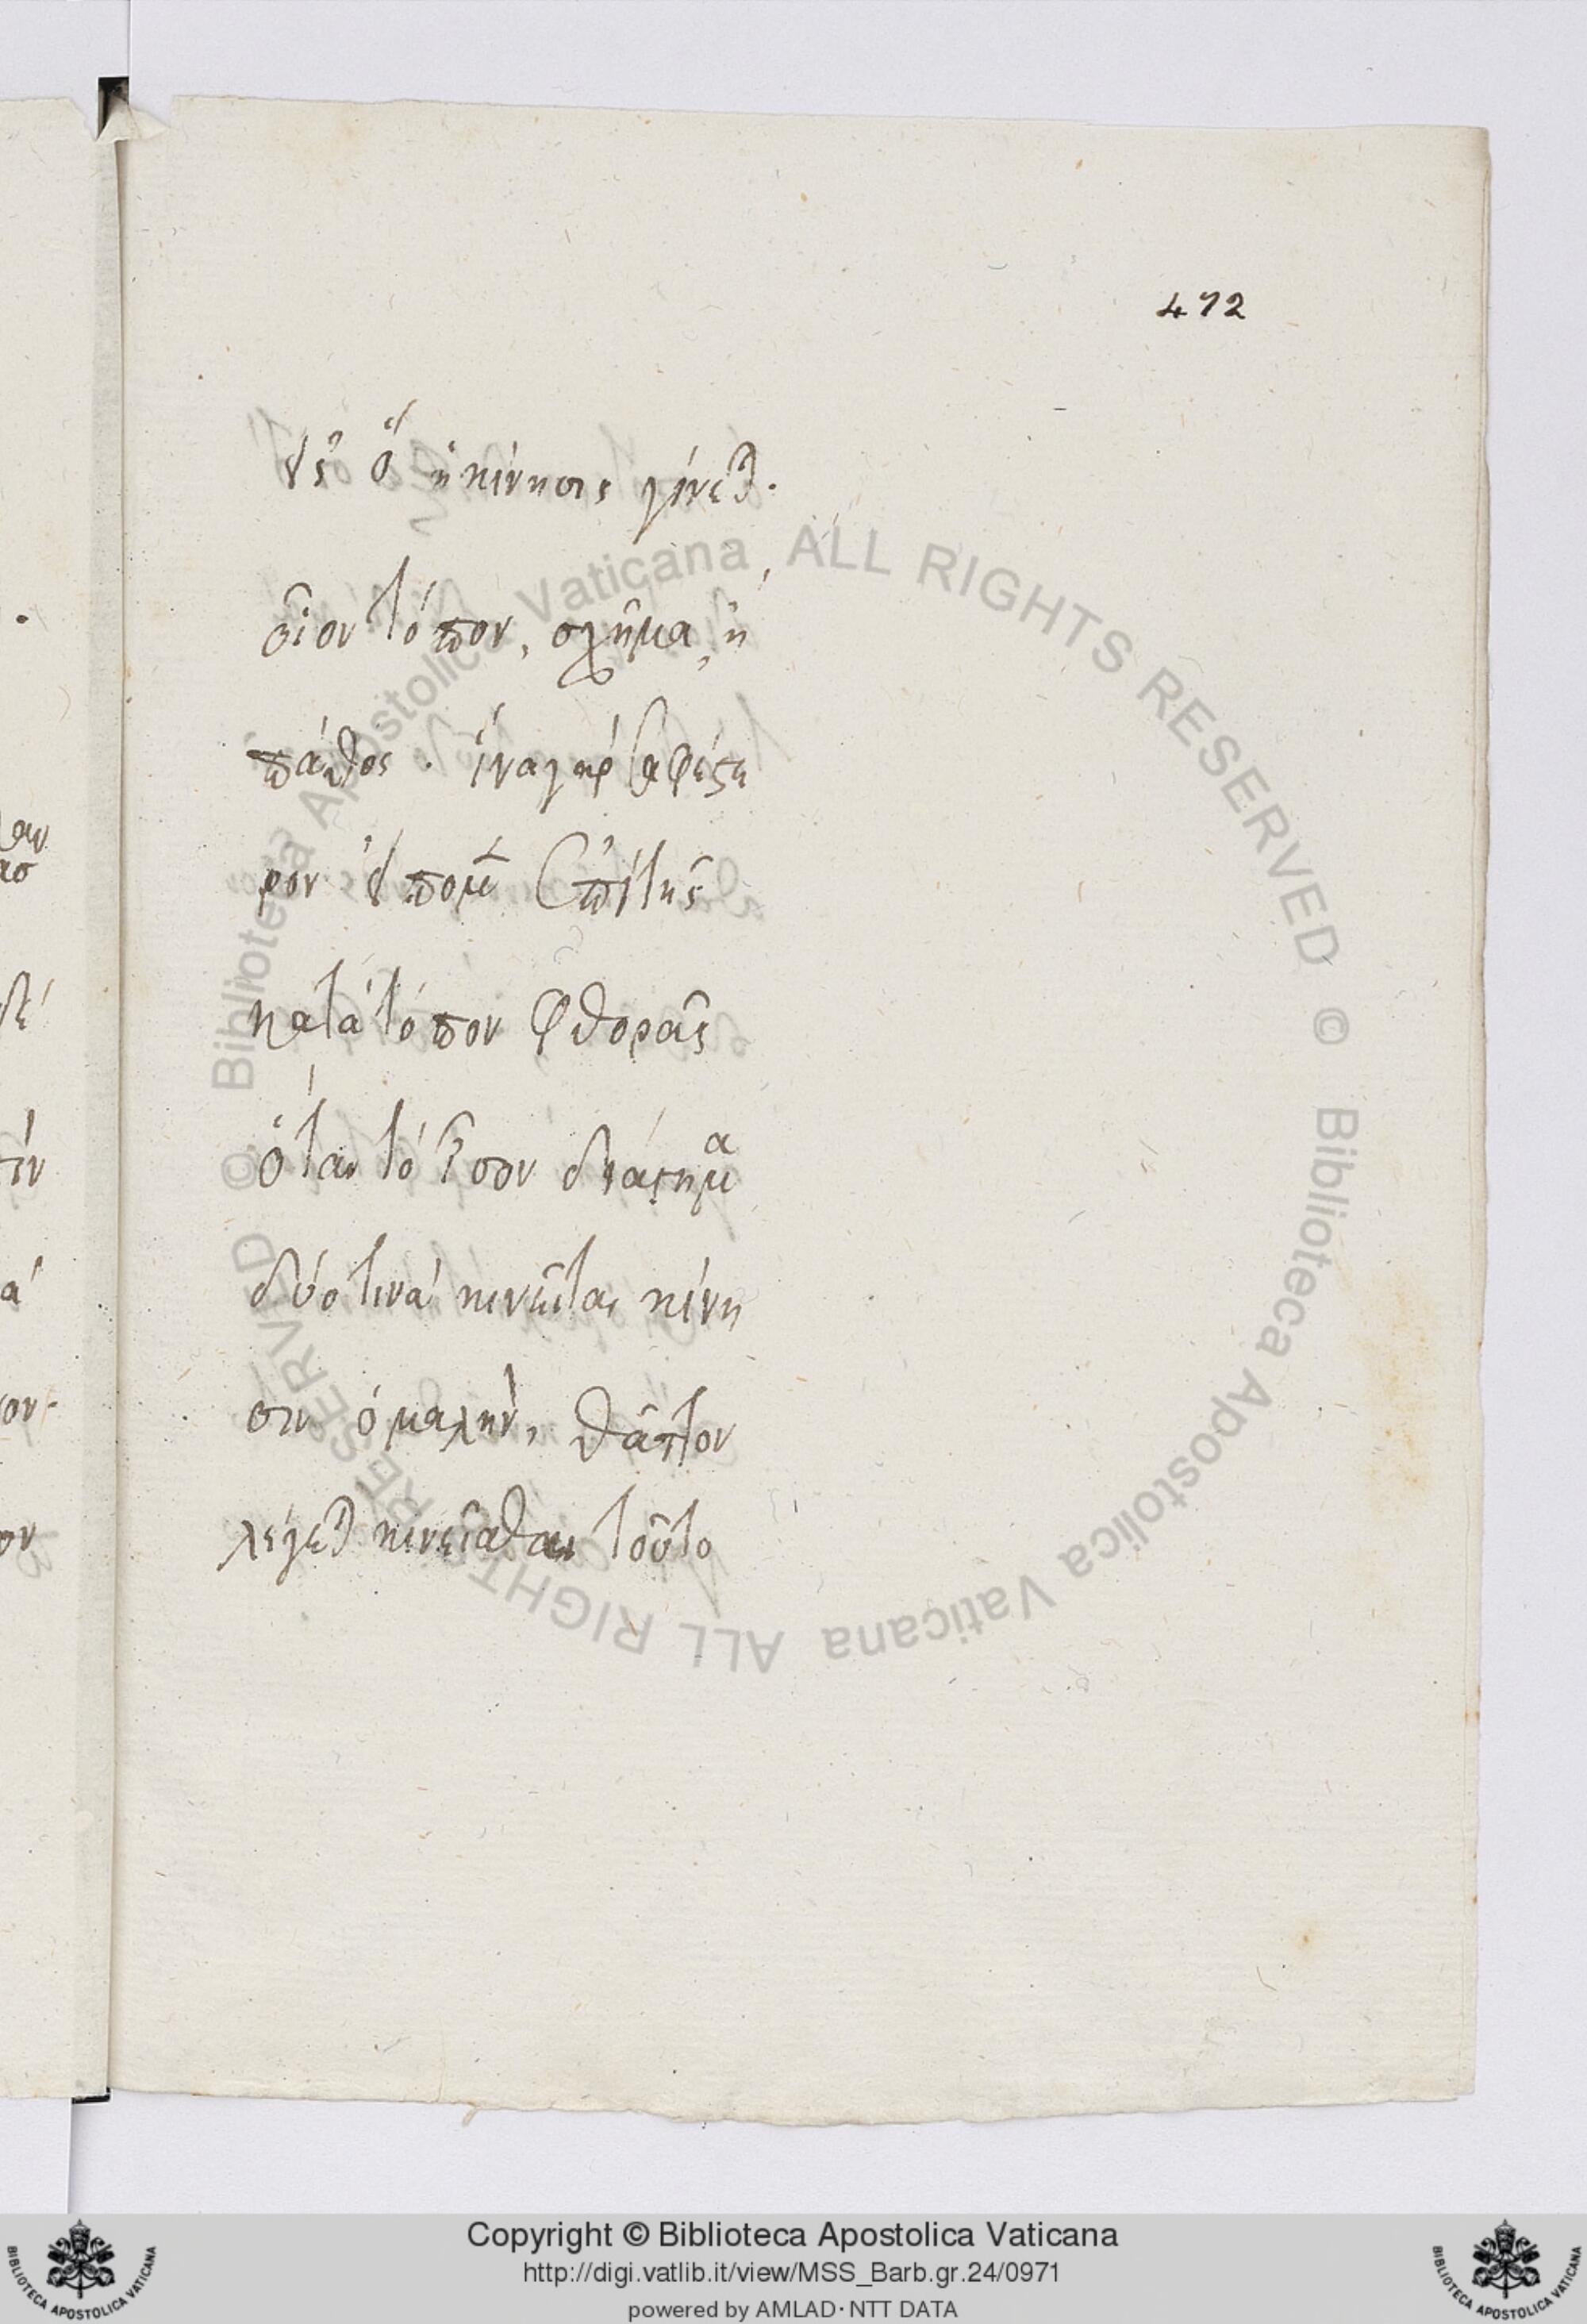 472
εἰς ὃ ἡ κίνησις γίνετ.
οἷον τόπον, σχῆμα, ἢ
πάθος. ἵνα γὰρ σαφέστε
ρον εἴπομεν ἐπὶ τῆς
κατὰ τόπον φθορᾶς
ὅταν τὸ ἴσον διάστημα
δύο τινὰ κινεῖται κίνη
σιν ὁμαλὴν, θᾶττον
λέγετ κινεῖσθαι τοῦτο
Biblioteca Apostolica Vaticana ALL RIGHTS RESERVED ©
Biblioteca Apostolica Vaticana ALL RIGHTS RESERVED ©
BIBLIOTECA APOSTOLICA VATICANA
Copyright © Biblioteca Apostolica Vaticana
http://digi.vatlib.it/view/MSS_Barb.gr.24/0971
powered by AMLAD·NTT DATA
BIBLIOTECA APOSTOLICA VATICANA